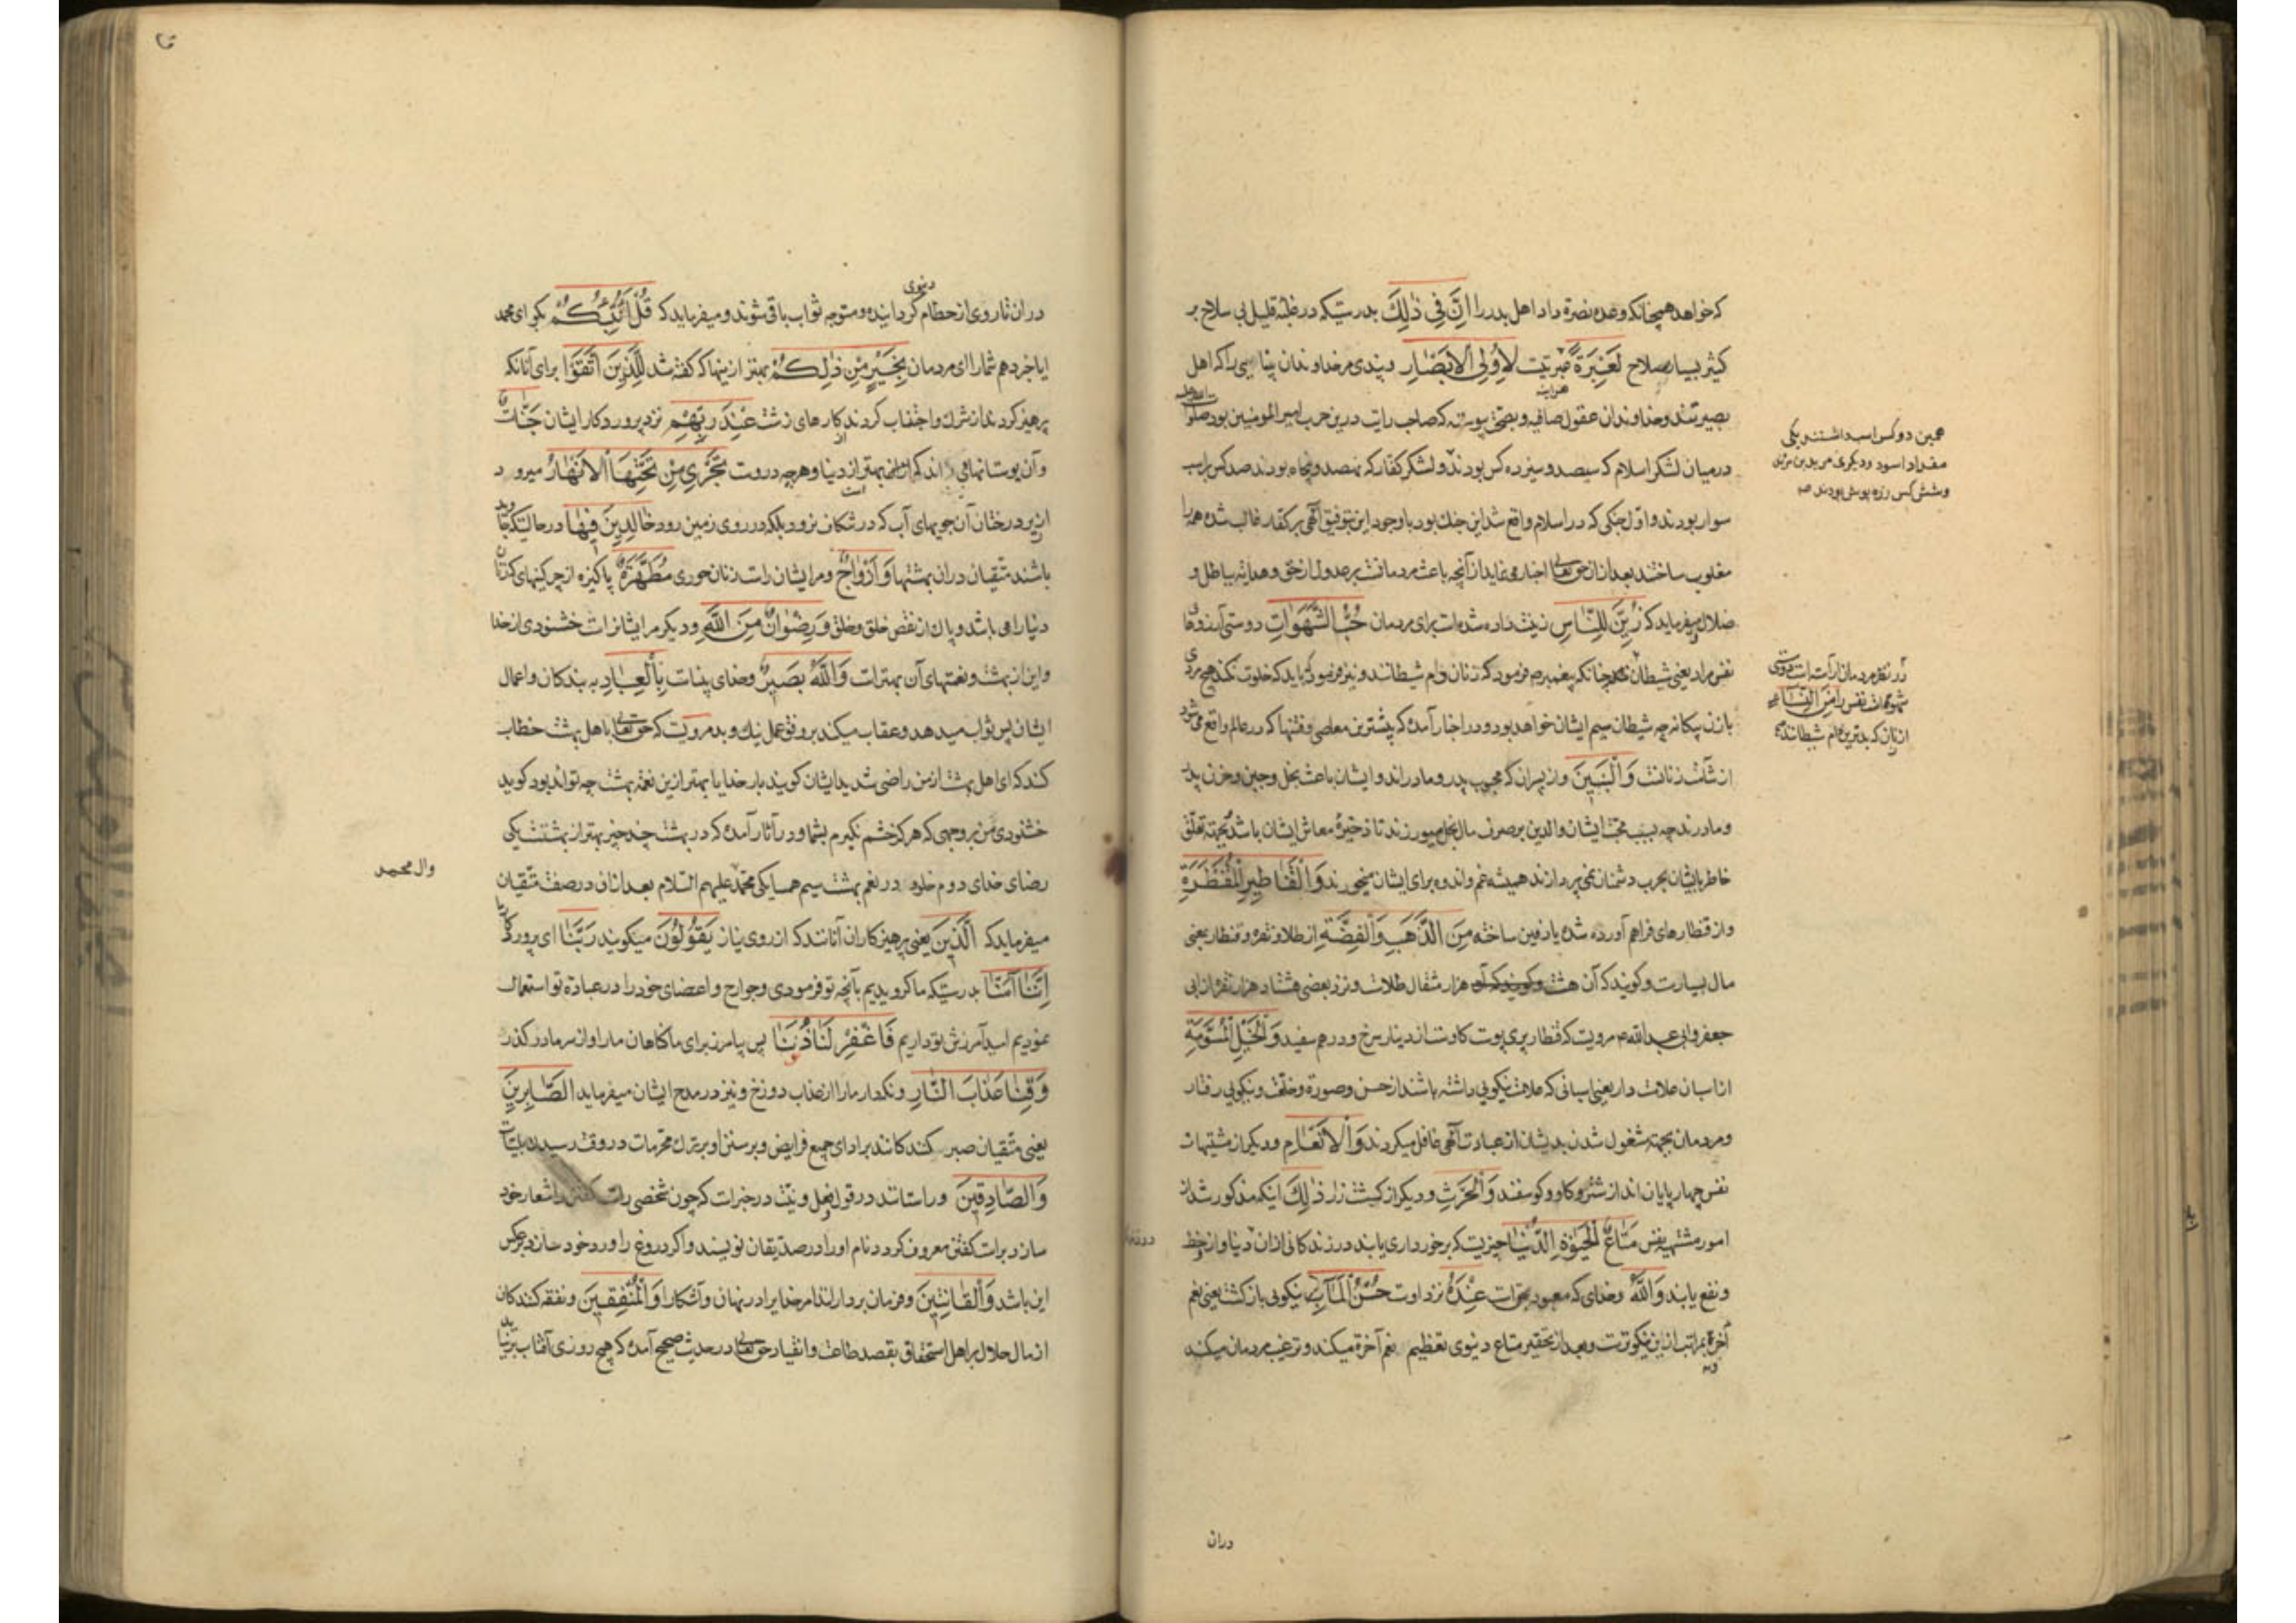 که خواهد همچنانکه وعده نصرة داد اهل بدر را اِنَّ فِی ذٰلِكَ بدرستیکه در غلبه قلیل بی سلاح بر
کثیر بسیار سلاح لَعِبْرَةً عبرتیست لِاُولِی الْاَبْصٰارِ و پندی مر خداوندان بینایی را که اهل
بصیرتند و خداوندان عقول صافیه و بصحت پیوسته که صاحب رایت درین حرب امیر المومنین بود صلوات الله علیه
درمیان لشکر اسلام که سیصد و سیزده کس بودند و لشکر کفار که نهصد و پنجاه بودند صد کس بر اسب
سوار بودند و اول جنکی که در اسلام واقع شد این جنك بود با وجود این بتوفیق الهی بر کفار غالب شده همه را
مغلوب ساختند بعد از ان از حق تعالی اخبار می نماید از آنچه باعث مردمانست بر عدول از حق و هدایه بباطل و
ضلال و میفرماید که زُیِّنَ لِلنّٰاسِ زینت داده شده است برای مردمان حُبُّ الشَّهَوٰاتِ دوستی آرزوهای
نفس مراد یعنی شیطان چنانکه پیغمبر ص فرمود که زنان دام شیطانند و نیز فرمود که باید که خلوت نکند هیچ مردی
با زن بیکانه چه شیطان سیم ایشان خواهد بود و در اخبار آمده که بیشترین معاصی و فتنها که در عالم واقع می شود
از شآمت زنانست وَالْبَنینَ و از پسران که محبوب پدر و مادراند و ایشان باعث بخل و جبن و حزن پدر
و مادرند چه بسبب محبت ایشان والدین بر صرف مال بخل میورزند تا ذخیرهٔ معاش ایشان باشد و بجهته تعلق
خاطر بایشان بحرب دشمنان نمی پردازند و همیشه غم و اندوه برای ایشان میخورند وَالْقَنٰاطِیرِ الْمُقَنْطَرَةِ
و از قنطارهای فراهم آورده شده یا دفین ساخته مِنَ الذَّهَبِ وَالْفِضَّةِ از طلا و نقره و قنطار یعنی
مال بسیارست و کویند که آن هشت هزار مثقال طلاست و نزد بعضی هشتاد هزار نقره از ابی
جعفر و ابی عبدالله ع مرویست که قنطار پری پوست کاوست از دینار سرخ و درهم سفید وَالْخَیْلِ الْمُسَوَّمَةِ
از اسبان علامت دار یعنی اسبانی که علامت نیکویی داشته باشند از حسن و صورة و خلقت و نیکویی رفتار
و مردمان بجهته مشغول شدن بدیشان از عبادت الهی غافل میکردند وَالْاَنْعٰامِ و دیکر از مشتهیات
نفس چهارپایان اند از شتر و کاو و کوسفند وَالْحَرْثِ و دیکر از کشت زار ذٰلِكَ اینکه مذکور شد از
امور مشتهیه نفس مَتٰاعُ الْحَیٰوةِ الدُّنْیٰا چیزیست که برخورداری یابند در زندکانی از ان دنیا و از حظ
و نفع یابند وَاللّٰهُ و خدای که معبود بحق است عِنْدَهُ نزد اوست حُسْنُ الْمَآبِ نیکویی بازکشت یعنی نعم
آخرة بمراتب ازین نیکوترست و بعد از تحقیر متاع دنیوی تعظیم نعم آخرة میکند و ترغیب مردمان میکند
همین دو کس اسب داشتند یکی
مقداد اسود و دیکری مرثد بن
و شش کس زره پوش بودند
در نظر مردمان آراسته است دوستی
شهوات نفس را مِنَ النِّسٰاءِ
از زنان که بدترین دام شیطانند
دران
دران تا روی از حطام دنیوی کردانیده و متوجه ثواب باقی شوند و میفرماید که قُلْ اَؤُنَبِّئُكُمْ بکو ای محمد
ایا خبر دهم شما را ای مردمان بِخَیْرٍ مِنْ ذٰلِكُمْ بهتر از اینها که کفته شد لِلَّذِینَ اتَّقَوْا برای آنانکه
پرهیز کردند از شرك و اجتناب کردند از کارهای زشت عِنْدَ رَبِّهِمْ نزد پروردکار ایشان جَنّٰاتٌ
و آن بوستانهایی اند که بهتر از دنیا و هرچه دروست تَجْرِی مِنْ تَحْتِهَا الْاَنْهٰارُ میرود
از زیر درختان آن جویهای آب که در شکاف نرود بلکه در روی زمین رود خٰالِدِینَ فِیهٰا در حالتیکه جاوید
باشند متقیان دران بهشتها وَاَزْوٰاجٌ و مر ایشان راست زنان حوری مُطَهَّرَةٌ پاکیزه از چرکینهای که زنان
دنیا را می باشد و پاك از نقص خلق و خلق وَرِضْوٰانٌ مِنَ اللّٰهِ و دیکر مر ایشانراست خشنودی از خدا
و این از بهشت و نعمتهای آن بهترست وَاللّٰهُ بَصِیرٌ و خدای بیناست بِالْعِبٰادِ به بندکان و اعمال
ایشان پس ثواب میدهد و عقاب میکند بر وفق عمل نیك و بد مرویست که حق تعالی با اهل بهشت خطاب
کند که ای اهل بهشت از من راضی شدید ایشان کویند بار خدایا بهتر ازین نعمة بهشت چه تواند بود کوید
خشنودی من بر وجهی که هرکز خشم نکیرم بشما و در آثار آمده که در بهشت چند چیز بهتر از بهشتست یکی
رضای خدای دوم خلود در نعم بهشت سیم همسایکی محمد علیهم السلام بعد از ان در صفت متقیان
میفرماید که اَلَّذِینَ یعنی پرهیزکاران آنانند که از روی نیاز یَقُولُونَ میکویند رَبَّنٰا ای پروردکار ما
اِنَّنٰا آمَنّٰا بدرستیکه ما کرویدیم بآنچه تو فرمودی و جوارح و اعضای خود را در عبادة تو استعمال
نمودیم امید آمرزش بتو داریم فَاغْفِرْ لَنٰا ذُنُوبَنٰا پس بیامرز برای ما کناهان ما را و از سر ما درکذر
وَقِنٰا عَذٰابَ النّٰارِ و نکهدار ما را از عذاب دوزخ و نیز در مدح ایشان میفرماید اَلصّٰابِرِینَ
یعنی متقیان صبر کنندکانند بر ادای جمیع فرایض و بر سنن و بر ترك محرمات در وقت رسیدن بلیات
وَالصّٰادِقِینَ و راستانند در قول و فعل و نیت در خبرست که چون شخصی راست کفتن را شعار خود
سازد و براست کفتن معروف کردد نام او را در صدیقان نویسند و اکر دروغ را ورد خود سازد برعکس
این باشد وَالْقٰانِتِینَ و فرمان بردارانند مر خدایرا در نهان و آشکارا وَالْمُنْفِقِینَ و نفقه کنندکان
از مال حلال بر اهل استحقاق بقصد طاعت و انقیاد حق تعالی در حدیث صحیح آمده که هیچ روزی آفتاب
وال محمد